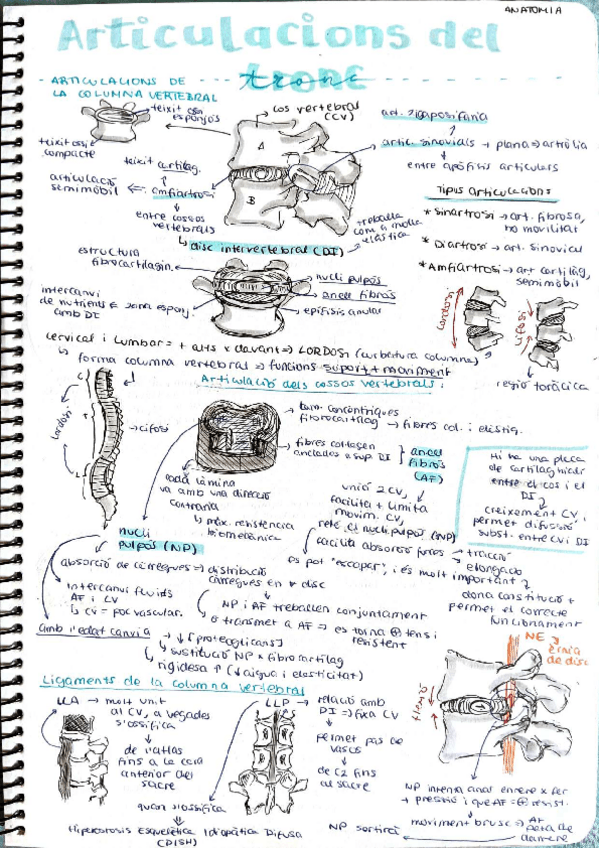 ANATOMIA
Articulacions del
tronc
ARTICULACIONS DE
LA COLUMNA VERTEBRAL
teixit ossi
esponjós
teixit ossi
compacte
cos vertebral
(CV)
art. zigaposifaria
artic. sinovials → plana ⇒ artròlia
entre apòfisis articulars
teixit cartilag.
articulació
semimòbil ⇐ amfiartrosi
entre cossos
vertebrals
A
B
disc intervertebral (DI)
treballa
com a molla
elàstica
Tipus articulacions
* Sinartrosi → art. fibrosa,
no movilitat
* Diartrosi → art. sinovial
* Amfiartrosi → art cartilág,
semimòbil
estructura
fibrocartilagin.
intercanvi
de nutrients ← zona esponj.
amb DI
nucli pulpós
anell fibrós
epífisis anular
lordosi
cifosi
regió toràcica
cervical i lumbar: + alts x davant ⇒ LORDOSI (curbatura columna)
↳ forma columna vertebral → funcions suport + moviment
Articulació dels cossos vertebrals:
C
lordosi
→ cifosi
L
lam. concèntriques
fibrocartilag → fibres col. i elàstiq.
fibres colagen
anclades a sup. DI
anell
fibrós
(AF)
cada làmina
va amb una direcció
contraria
↳ màx. resistència
biomecànica
unió 2 CV,
facilita + limita
movim. CV,
reté el nucli pulpós (NP)
facilita absorció forces → tracció
elongació
Hi ha una placa
de cartílag hialí
entre el cos i el
DI
creixement CV i
permet difusió
subst. entre CV i DI
nucli
pulpós (NP)
es pot "escapar", i és molt important
dona constitució +
permet el correcte
funcionament
absorció de càrregues → distribució
càrregues en * disc
intercanvi fluids
AF i CV
↳ CV = poc vascular.
NP i AF treballen conjuntament
transmet a AF → es torna ⊕ tens i
resistent
amb l'edat canvia → ↓ [proteoglicans]
↳ sustitució NP x fibrocartilag
↳ rigidesa ↑ (↓ aigua i elasticitat)
NE → èrnia
de disc
flexió
Ligaments de la columna vertebral
LLA → molt unit
al CV, a vegades
s'ossifica
de l'atlas
fins a la cara
anterior del
sacre
LLP → relació amb
DI ⇒ fixa CV
permet pas de
vasos
de C2 fins
al sacre
quan s'ossifica
Hiperostosis Esquelètica Idiopàtica Difusa
(DISH)
NP intenta anar enrere x fer
+ pressió i que AF = ⊕ resist.
moviment brusc → AF
peta de
darrere
NP sortirà